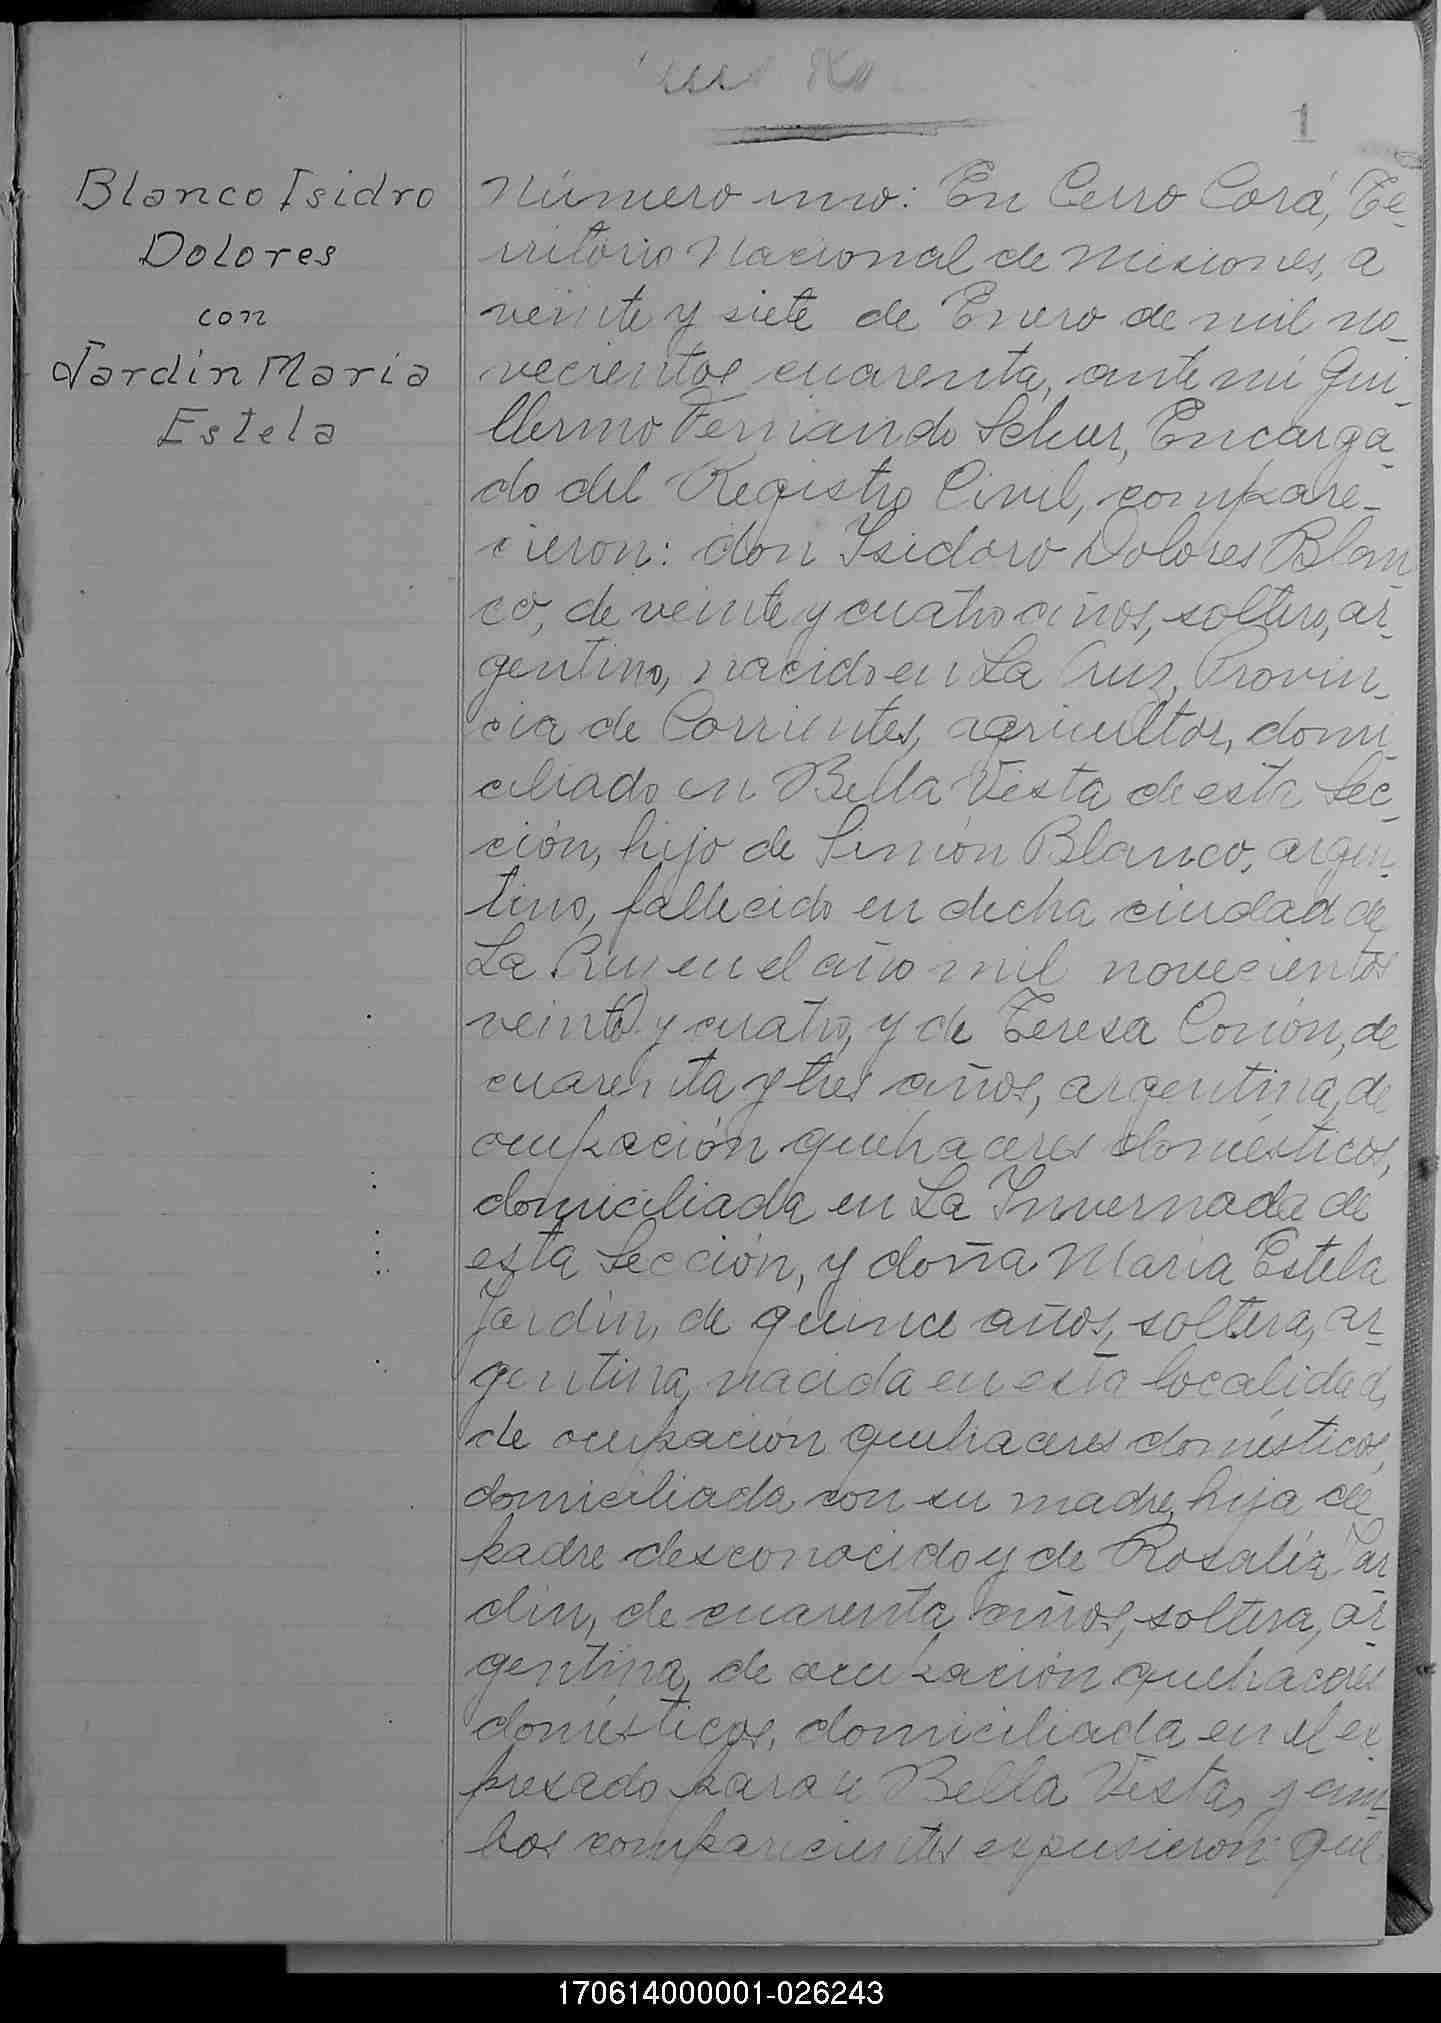 1
Blanco Isidro
Dolores
con
Jardin Maria
Estela
Número uno: En Cerro Corá, Te-
rritorio Nacional de Misiones, a
veinte y siete de Enero de mil no-
vecientos cuarenta, ante mi Gui-
llermo Fernando Schur, Encarga-
do del Registro Civil, compare-
cieron: don Isidoro Dolores Blan
co, de veinte y cuatro años, soltero, ar-
gentino, nacido en La Cruz, Provin-
cia de Corrientes, agricultor, domi-
ciliado en Bella Vista de esta Sec-
ción, hijo de Simón Blanco, argen-
tino, fallecido en dicha ciudad de
La Cruz en el año mil novecientos
veinte y cuatro, y de Teresa de
cuarenta y tres años, argentina, de
ocupación quehaceres domésticos,
domiciliada en La Invernada de
esta Sección, y doña María Estela
Jardín, de quince años, soltera, ar-
gentina, nacida en esta localidad,
de ocupación quehaceres domésticos,
domiciliada con su madre, hija de
padre desconocido y de Rosalía Jar
dín, de cuarenta años, soltera, ar-
gentina, de ocupación quehaceres
domésticos, domiciliada en el ex
presado paraje Bella Vista, y am-
bos comparecientes expusieron: que
170614000001-026243